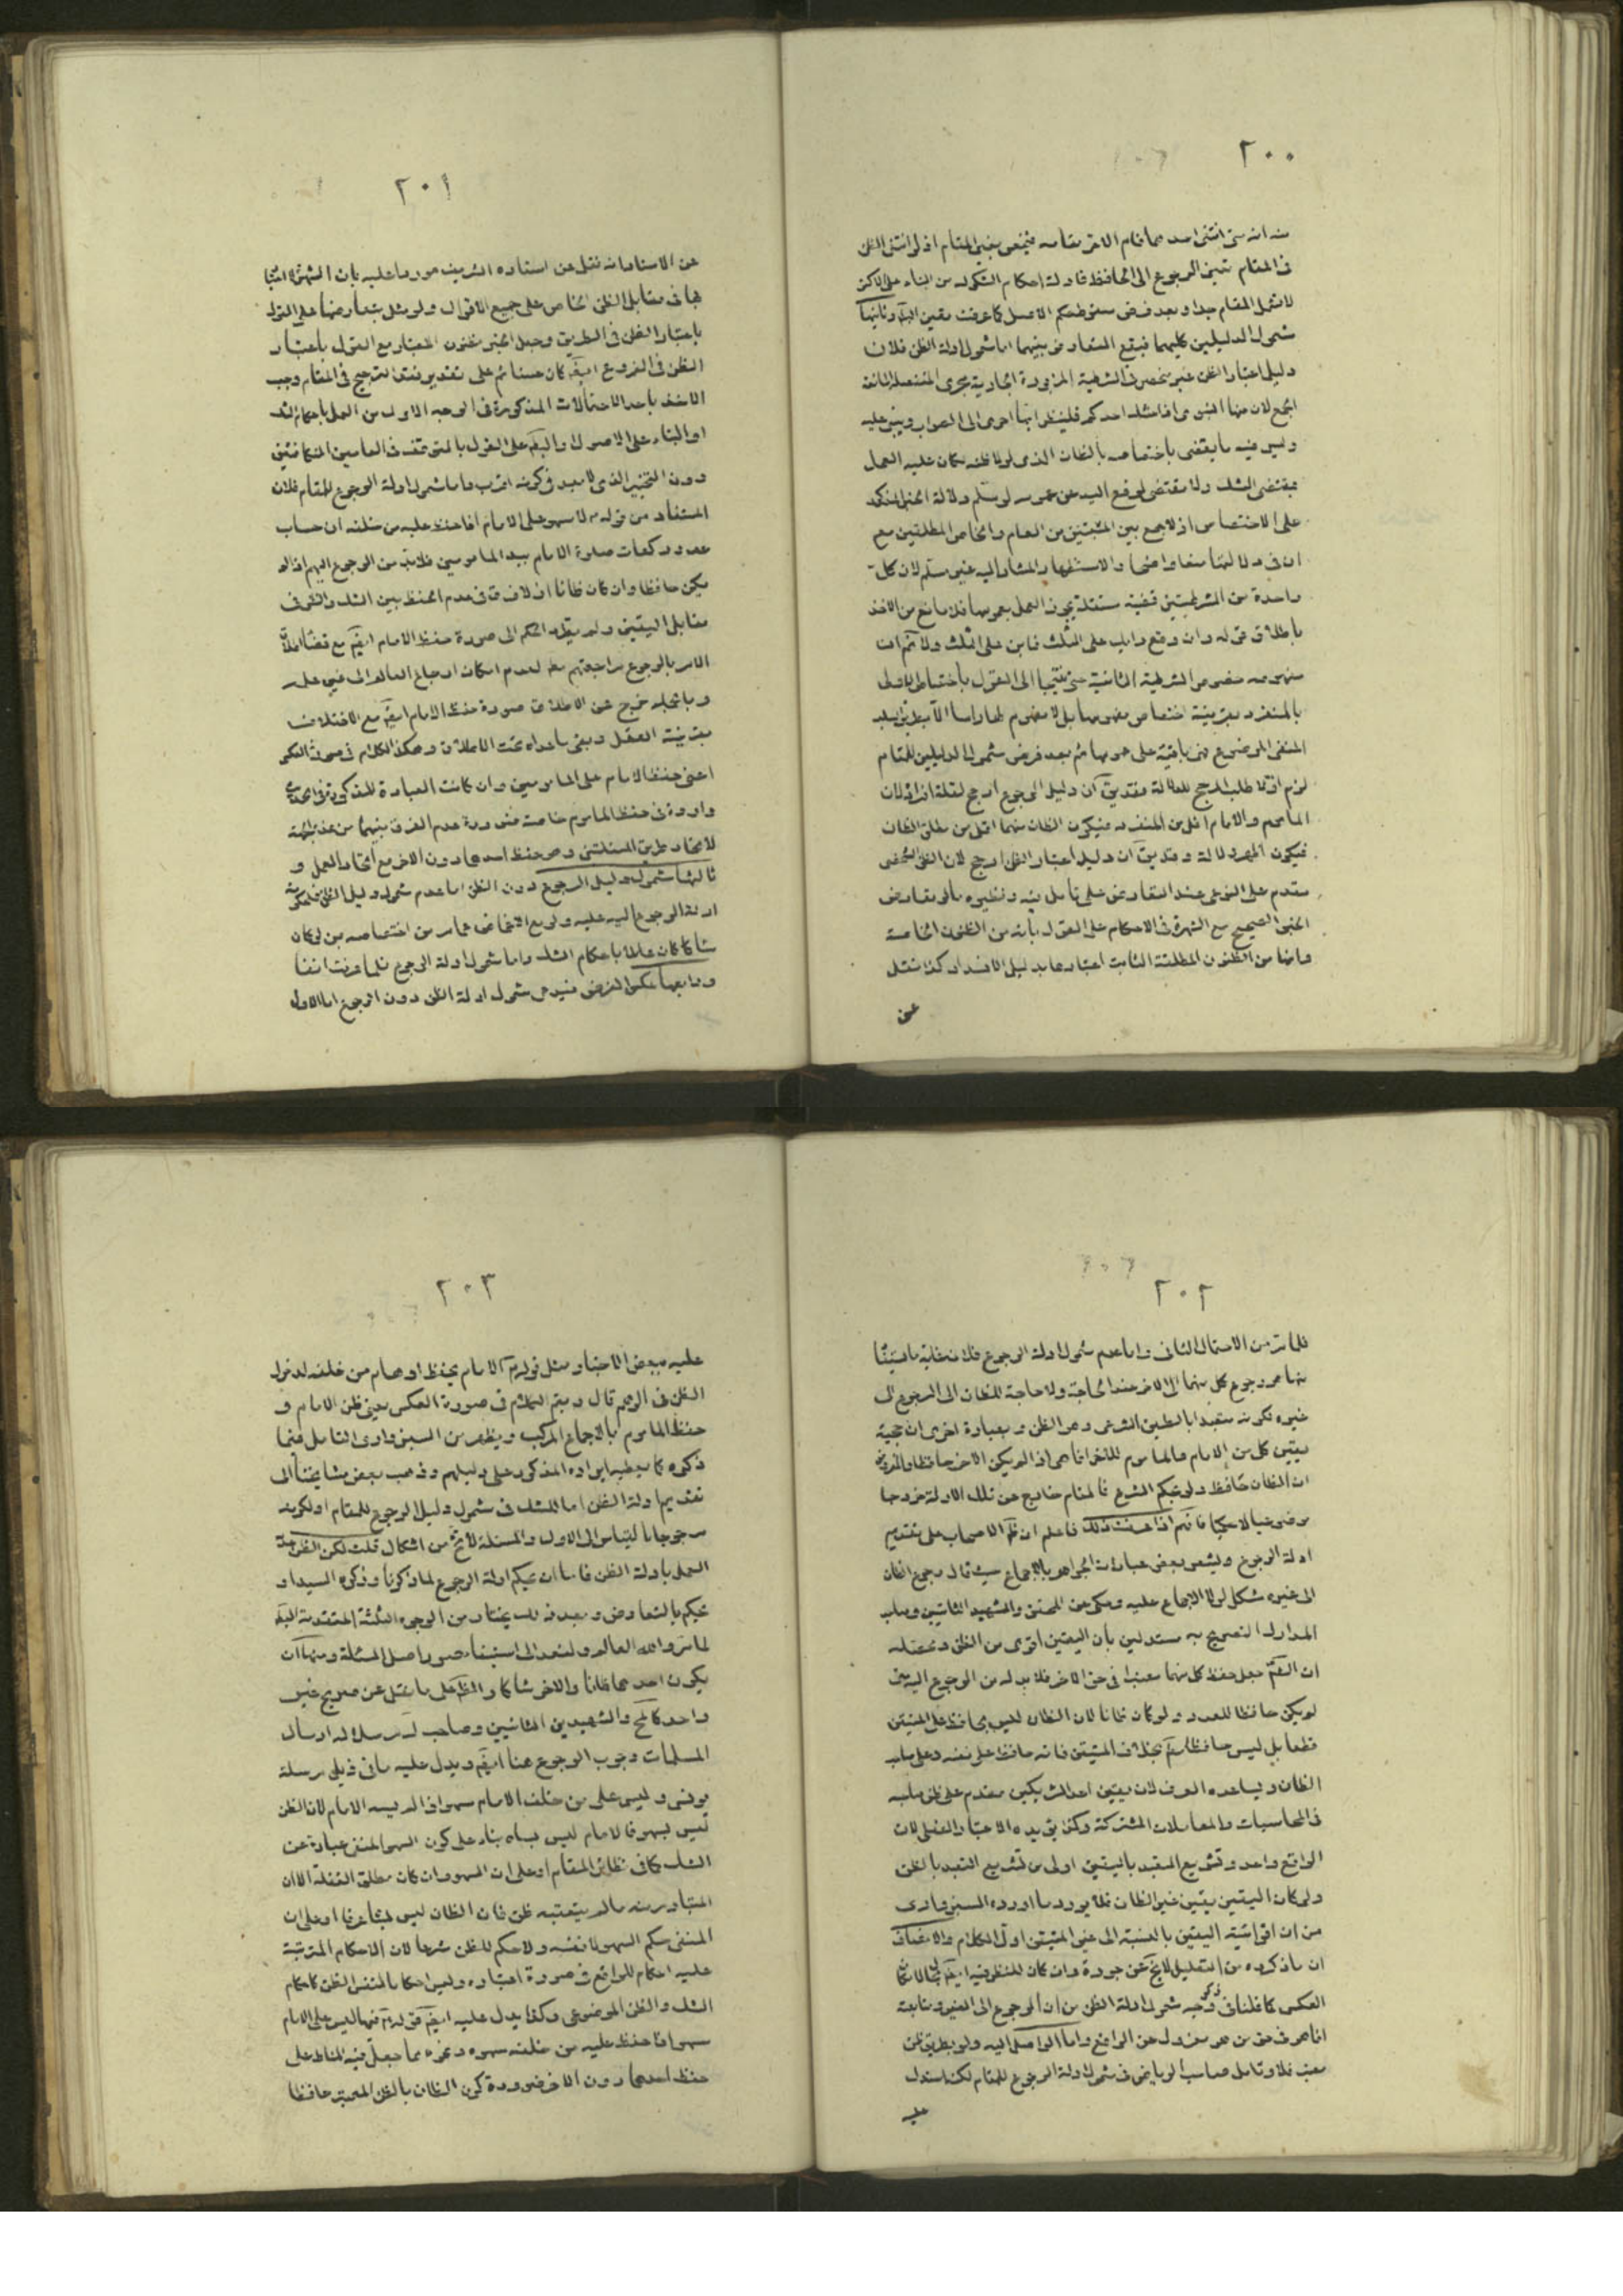 ٢٠٠
منه انه متى انتفى احدهما قام الاخر مقامه فينبغى بغيى المقام اذ لو انتفى الظن
فى المقام تعين الرجوع الى الحافظ فادلة احكام الشكوك من البناء على الاكثر
لا تشمل المقام جدا وبعد فرض سقوط حكم الاصل كما عرفت يقين البتة وثانيها
شمول الدليلين كليهما فيقع التعارض بينهما اما شمول ادلة الظن فلان
دليل اعتبار الظن غير منحصر فى الشرطية المزبورة الجارية مجرى المنفصلة المانعة
الجمع لان منها النبوى اذا شك احدكم فلينظر ايها احرى الى الصواب ويبنى عليه
وليس فيه ما يقتضى باختصاصه بالظان الذى لولا ظنه لكان عليه العمل
بمقتضى الشك ولا مقتضى لرفع اليد عن عمومه لو سلم دلالة الخبر المذكور
على الاختصاص اذ لا جمع بين المثبتين من العام والخاص المطلقين مع
ان فى دلالتها منعا واضحا والاستظهار المشار اليه غير مسلم لان كل
واحدة من الشرطيتين قضية مستقلة يجوز العمل بعمومها فلا مانع من الاخذ
باطلاق قوله وان وقع رأيك على الثلث فابن على الثلث ولا
مفهومه منصوص الشرطية الثانية حتى نلتجأ الى القول باختصاص الاولى
بالمنفرد بقرينة اختصاص مفهومها بل لا مفهوم لها راسا الا بطريق السلب
المنفى الموضوع فهى باقية على عمومها ثم بعد فرض شمول الدليلين للمقام
لزم اولا طلب المرجح للدلالة وقد يق ان دليل الرجوع ارجح لقلة افراده لان
الماموم والامام اقل من المنفرد فيكون الظان منهما اقل من مطلق الظان
فيكون اظهر دلالة وقد يق ان دليل اعتبار الظن ارجح لان الظن الشخصى
مقدم على النوعى عند التعارض على تامل فيه ونظيره ما لو تعارض
الخبر الصحيح مع الشهرة فى الاحكام على القول بانه من الظنون الخاصة
وانها من الظنون المطلقة الثابت اعتبارها بدليل الانسداد كذا نقل
عن
٢٠١
عن الاستاد انه نقل عن استاده الشريف موردا عليه بان الشهرة لا اعتبار
لها فى مقابل الظن الخاص على جميع الاقوال ولو مثل بتعارضها على القول
باعتبار الظن فى الطريق وجعل الخبر مظنون الاعتبار مع القول باعتبار
الظن فى الفروع ايضا كان حسنا ثم على تقدير فقد الترجيح فى المقام وجب
الاخذ باحد الاحتمالات المذكورة فى الوجه الاول من العمل باحكام الشك
او البناء على الاصول او البقاء على القول بالتوقف فى العامين المتكافئين
ودون التخيير الذى لا يبعد فى كونه اقرب واما شمول ادلة الرجوع للمقام فلان
المستفاد من قوله لا سهو على الامام اذا حفظ عليه من خلفه ان حساب
عدد ركعات صلوة الامام بيد المامومين فلا بد من الرجوع اليهم اذا لم
يكن حافظا وان كان ظانا اذ لا فرق فى عدم الحفظ بين الشك والظن فى
مقابل اليقين ولم يتطرق الحكم الى صورة حفظ الامام ايضا مع قضاء اطلاق
الامر بالرجوع مراجعتهم معه لعدم امكان ارجاع العالم الى غير علمه
وبالجملة خرج عن الاطلاق صورة حفظ الامام ايضا مع الاختلاف
بقرينة العقل وبقى ما عداه تحت الاطلاق وهكذا الكلام فى صورة العكس
اعنى حفظ الامام على المامومين وان كانت العبارة المذكورة فى الحديث
واردة فى حفظ الماموم خاصة ضرورة عدم الفرق بينهما من هذه الجهة
لاتحاد طريق المسئلتين وهو حفظ احدهما دون الاخر مع اتحاد العمل و
ثالثها شمول دليل الرجوع دون الظن اما عدم شمول دليل الظن
ادلة الرجوع اليه عليه ولو مع الاغماض عما مر من اختصاصه بمن لو كان
شاكا كان عاملا باحكام الشك واما شمول ادلة الرجوع فلما عرفت انفا
ورابعها عكس الفرض فيه من شمول ادلة الظن دون الرجوع اما الاول
٢٠٢
فلما مر من الاحتمال الثانى واما عدم شمول ادلة الرجوع فلان غاية ما يستفاد
منها هو رجوع كل منهما الى الاخر عند الحاجة ولا حاجة للظان الى الرجوع الى
غيره لكونه متعبدا بالطريق الشرعى وهو الظن وبعبارة اخرى ان حجية
يقين كل من الامام والماموم للاخر انما هى اذا لم يكن الاخر حافظا والمفروض
ان الظان حافظ ولو بحكم الشرع فالمقام خارج عن تلك الادلة خروجا
موضوعيا لا حكميا فافهم اذا عرفت ذلك فاعلم ان ظاهر الاصحاب على تقديم
ادلة الرجوع ويشعر بعض عبارات الجواهر بالاجماع حيث قال رجوع الظان
الى غيره مشكل لولا الاجماع عليه وحكى عن المحقق والشهيد الثانيين وصاحب
المدارك التصريح به مستدلين بان اليقين اقوى من الظن ومحصله
ان الشارع جعل حفظ كل منهما معتبرا فى حق الاخر فلا بد له من الرجوع اليه متى
لم يكن حافظا للعدد ولو كان ظانا لان الظان ليس بحافظ على المتيقن
قطعا بل ليس حافظا بخلاف المتيقن فانه حافظ على نفسه وعلى صاحبه
الظان ويساعده العرف لان يقين احد الشريكين مقدم على ظن صاحبه
فى المحاسبات والمعاملات المشتركة وكذا يؤيده الاعتبار العقلى لان
الواقع واحد وتشريع التعبد باليقين اولى من تشريع التعبد بالظن
ولو كان اليقين يقين غير الظان فلا يرد ما اورده السبزوارى
من ان اقوائية اليقين بالنسبة الى غير المتيقن اول الكلام والانصاف
ان ما ذكروه من التعليل لا يخ عن جودة وان كان للنظر فيه ايضا مجال لامكان
العكس كما قلنا فى ذكر وجه شمول ادلة الظن من ان الرجوع الى الغير ومتابعة
انما هو فى حق من هو معزول عن الواقع واما الواصل اليه ولو بطريق ظن
معتبر فلا وتامل صاحب الرياض فى شمول ادلة الرجوع للمقام لكن استدل
عليه
٢٠٣
عليه ببعض الاخبار مثل قوله الامام يحفظ اوهام من خلفه لدخول
الظن فى الوهم قال ويتم الكلام فى صورة العكس يعنى ظن الامام و
حفظ الماموم بالاجماع المركب ويظهر من السبزوارى التامل فيما
ذكره كما يعطيه ايراده المذكور على دليلهم وذهب بعض مشايخنا الى
تقديم ادلة الظن اما للشك فى شمول دليل الرجوع للمقام او لكونه
مرجوحا بالقياس الى الاول والمسئلة لا يخ من اشكال قلت لكن الظن
العمل بادلة الظن فاما ان نحكم ادلة الرجوع لما ذكرنا وذكره السيد او
نحكم بالتعارض وبعد ذلك نختار من الوجوه الثلثة المتقدمة البقاء
لما مر والله العالم ولنعد الى استيفاء صور اصل المسئلة ومنها ان
يكون احدهما ظانا والاخر شاكا والظ على ما نقل عن صريح غير
واحد كالمحقق والشهيدين الثانيين وصاحب ك مرسلا له ارسال
المسلمات وجوب الرجوع هنا ايضا ويدل عليه ما فى ذيل مرسلة
يونس وليس على من خلف الامام سهو اذا لم يسه الامام لان الظن
ليس بسهو فالامام ليس بساه بناء على كون السهو المنفى عبارة عن
الشك كما فى نظائر المقام او على ان السهو وان كان مطلق الغفلة الا ان
المتبادر منه ما لم يتعقبه ظن فان الظان ليس بشاك عرفا او على ان
المنفى حكم السهو لا نفسه ولا حكم للظن شرعا لان الاحكام المترتبة
عليه احكام للواقع فى صورة اعتباره وليس احكاما لنفس الظن كاحكام
الشك والظن الموضوعى وكذا يدل عليه ايضا قوله فيها ليس على الامام
سهو اذا حفظ عليه من خلفه سهوه ونحوه مما جعل فيه المناط على
حفظ احدهما دون الاخر ضرورة كون الظان بالظن المعتبر حافظا